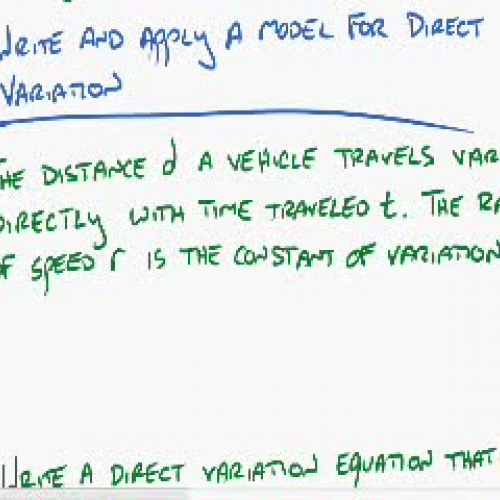 WRITE AND APPLY A MODEL FOR DIRECT
VARIATION
THE DISTANCE d A VEHICLE TRAVELS VAR
DIRECTLY WITH TIME TRAVELED t. THE RA
OF SPEED r IS THE CONSTANT OF VARIATION
WRITE A DIRECT VARIATION EQUATION THAT